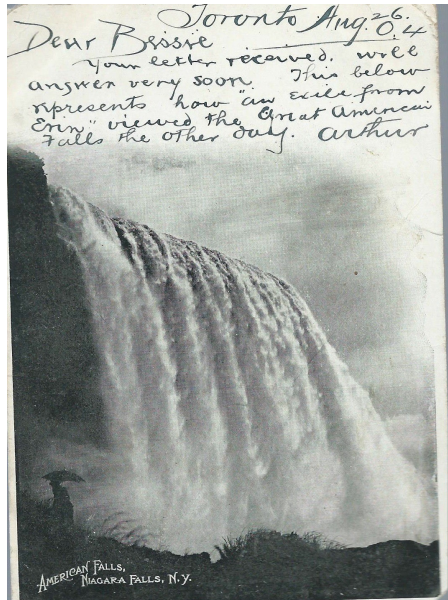 Toronto Aug. 26. 04
Dear Bessie
Your letter received. will
answer very soon. This below
represents how "an exile from
Erin" viewed the Great American
Falls the other day. Arthur
AMERICAN FALLS,
NIAGARA FALLS, N.Y.